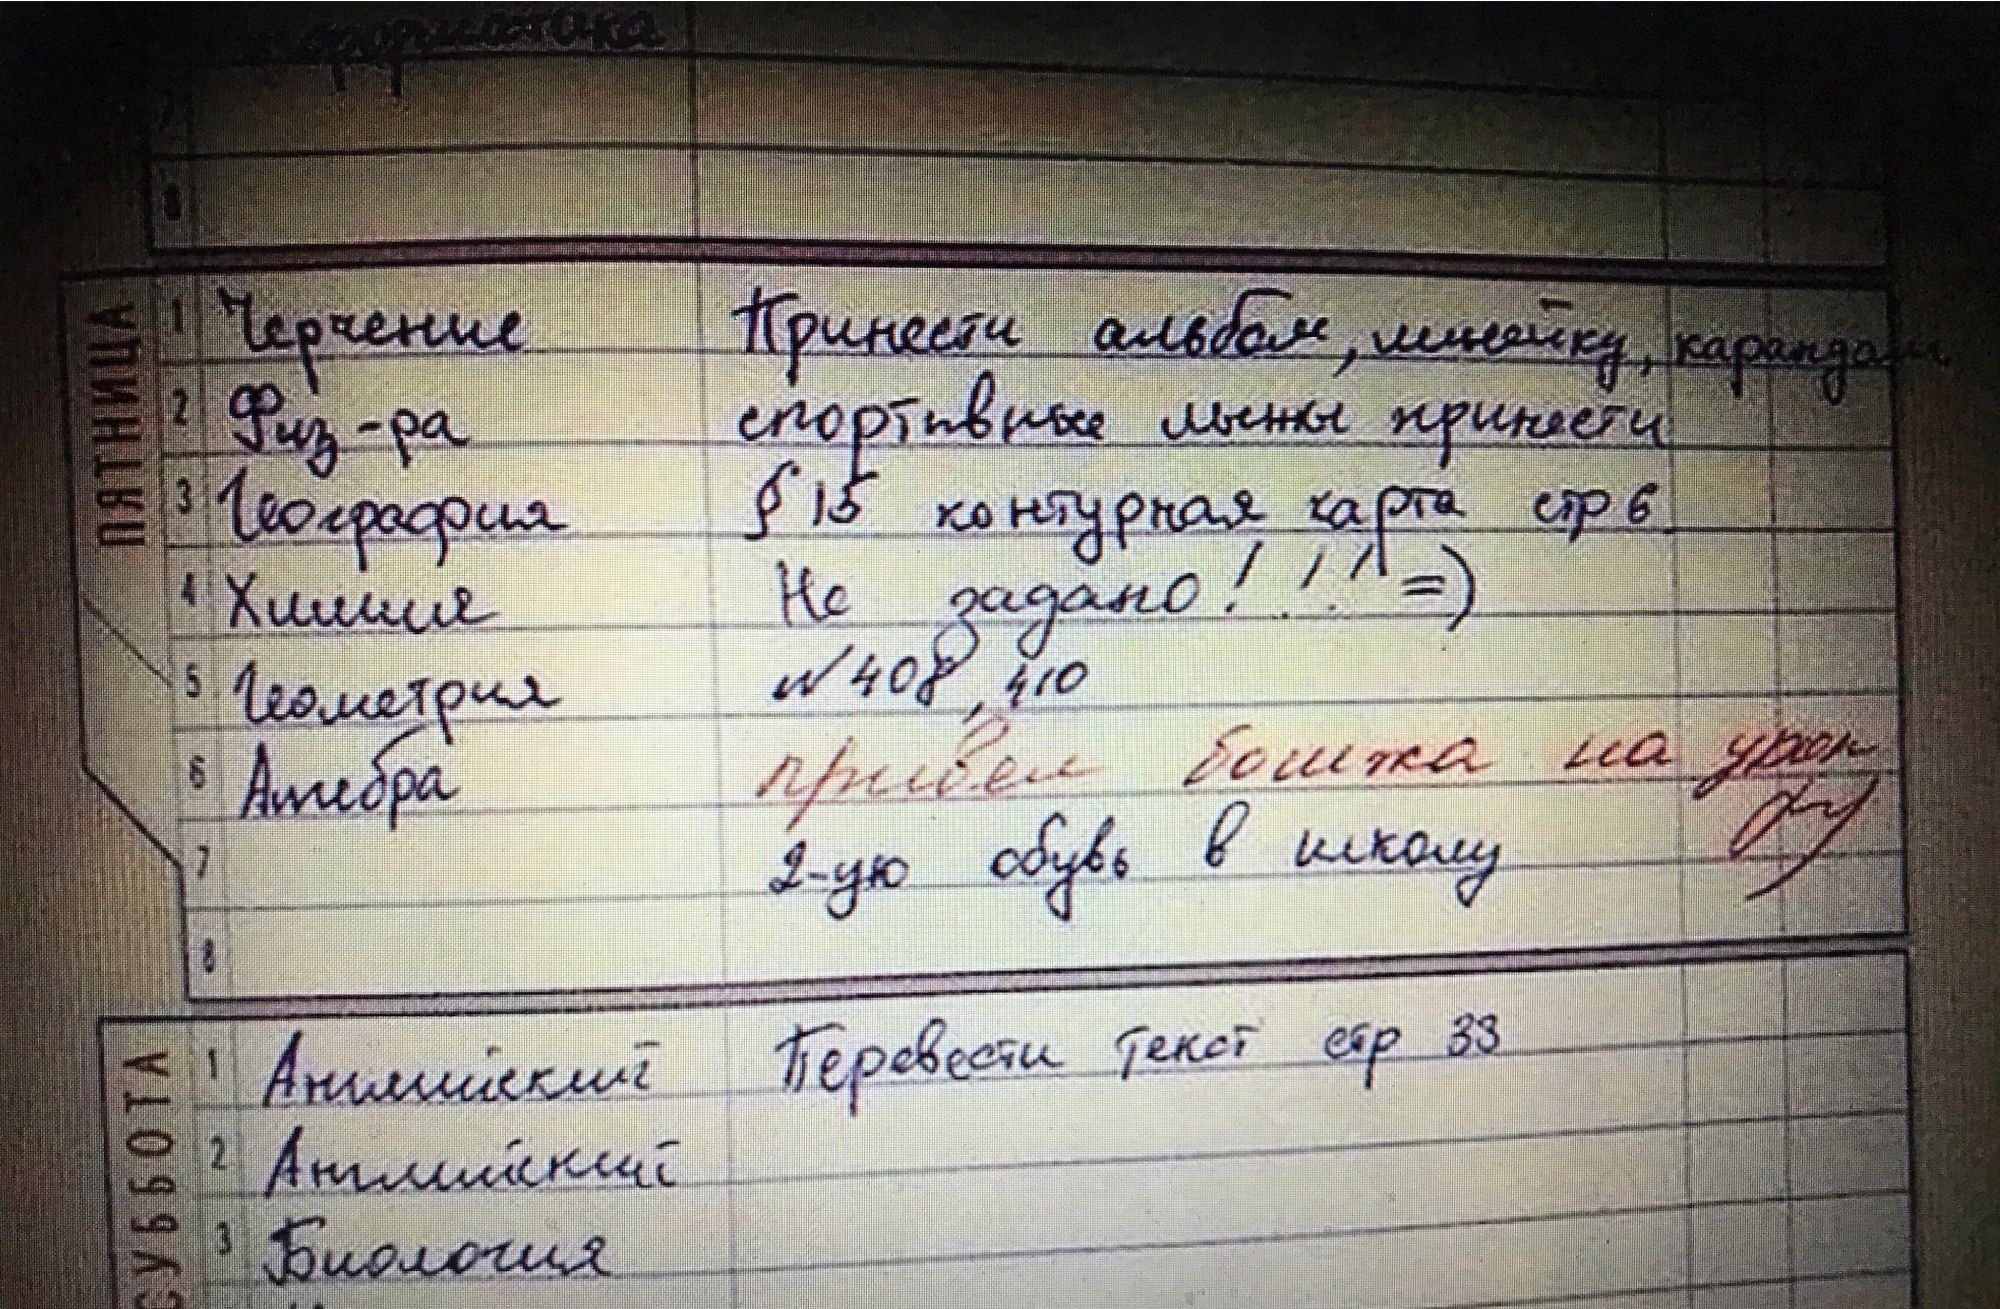 информатика
7
8
ПЯТНИЦА
1 Черчение Принести альбом, линейку, карандаш
2 Физ-ра спортивные лыжи принести
3 География § 15 контурная карта стр 6
4 Химия Не задано!!!! =)
5 Геометрия №408, 410
6 Алгебра привёл бомжа на урок
7 2-ую обувь в школу
8
СУББОТА
1 Английский Перевести текст стр 33
2 Английский
3 Биология